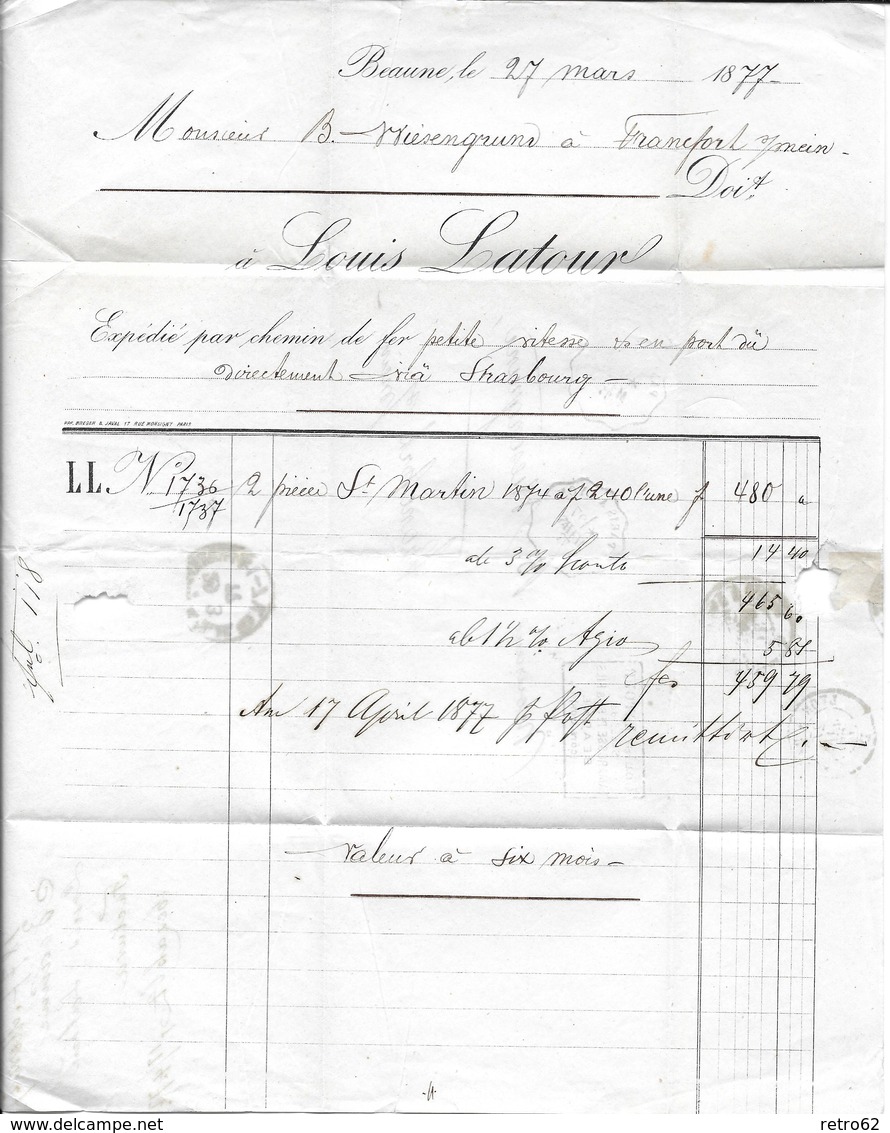 Beaune, le 27 mars 1877
Monsieur B. Wiesengrund à Francfort s/mein
Doit
à Louis Latour
Expédié par chemin de fer petite vitesse & en port dû
directement viâ Strasbourg
IMP. BROSSER & JAVAL 17 RUE MONSIGNY PARIS
LL N° 1736 2 pièces St Martin 1874 à f 240 l'une f 480 "
1737
ab 3% Sconto 14 40
465 60
Fol. 118
ab 1 1/4 % Agio 5 81
fcs 459 79
Am 17 April 1877 p Post remittirt
Valeur à six mois
delcampe.net
retro62